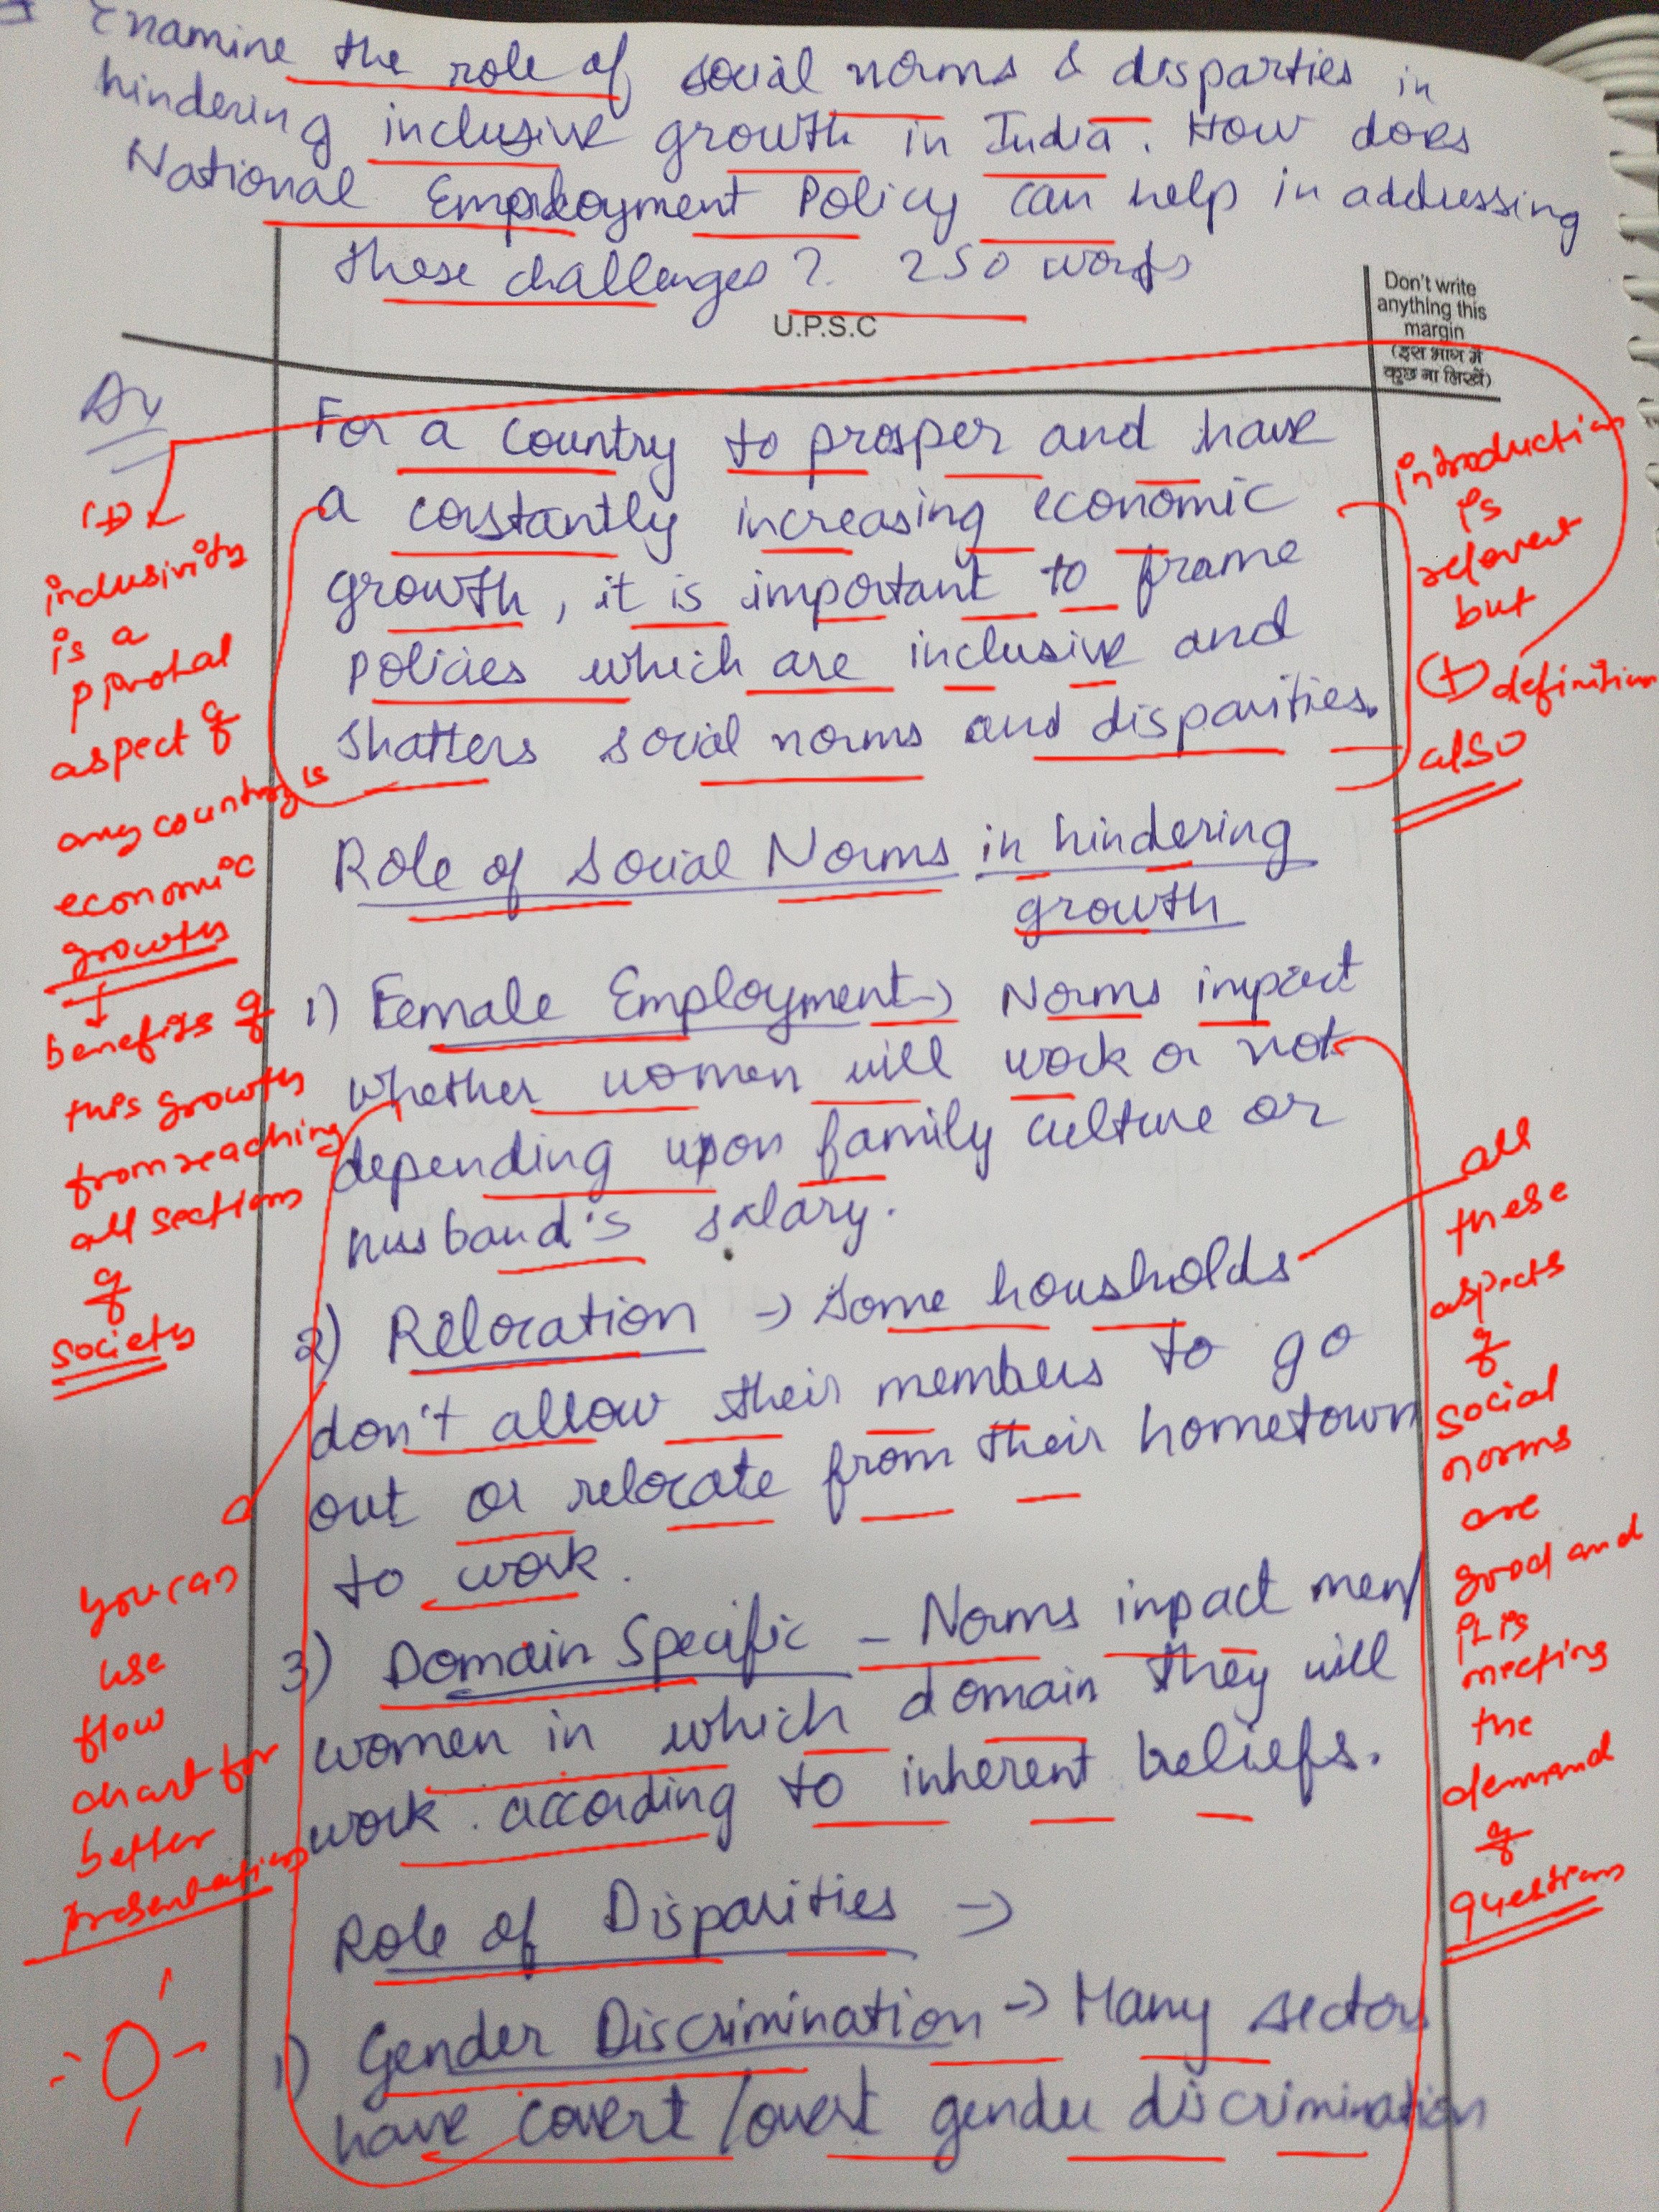 Examine the role of social norms & disparties in
hindering inclusive growth in India. How does
National Employment Policy can help in addressing
these challenges? 250 words
U.P.S.C
Don't write
anything this
margin
(इस भाग में
कुछ ना लिखें)
For a country to prosper and have
a constantly increasing economic
growth, it is important to frame
policies which are inclusive and
shatters social norms and disparities.
Role of Social Norms in hindering
growth
1) Female Employment → Norms impact
whether women will work or not
depending upon family culture or
husband's salary.
2) Relocation → Some households
don't allow their members to go
out or relocate from their hometown
to work.
3) Domain Specific – Norms impact men/
women in which domain they will
work according to inherent beliefs.
Role of Disparities →
1) Gender Discrimination → Many sectors
have covert/overt gender discrimination
(+)
inclusivity
is a
pivotal
aspect of
any country's
economic
growth
↓
benefits of
this growth
from reaching
all sections
of
society
you can
use
flow
chart for
better
presentation
introduction
is
relevent
but
(+) definition
also
all
these
aspects
of
social
norms
are
good and
it is
meeting
the
demand
of
question